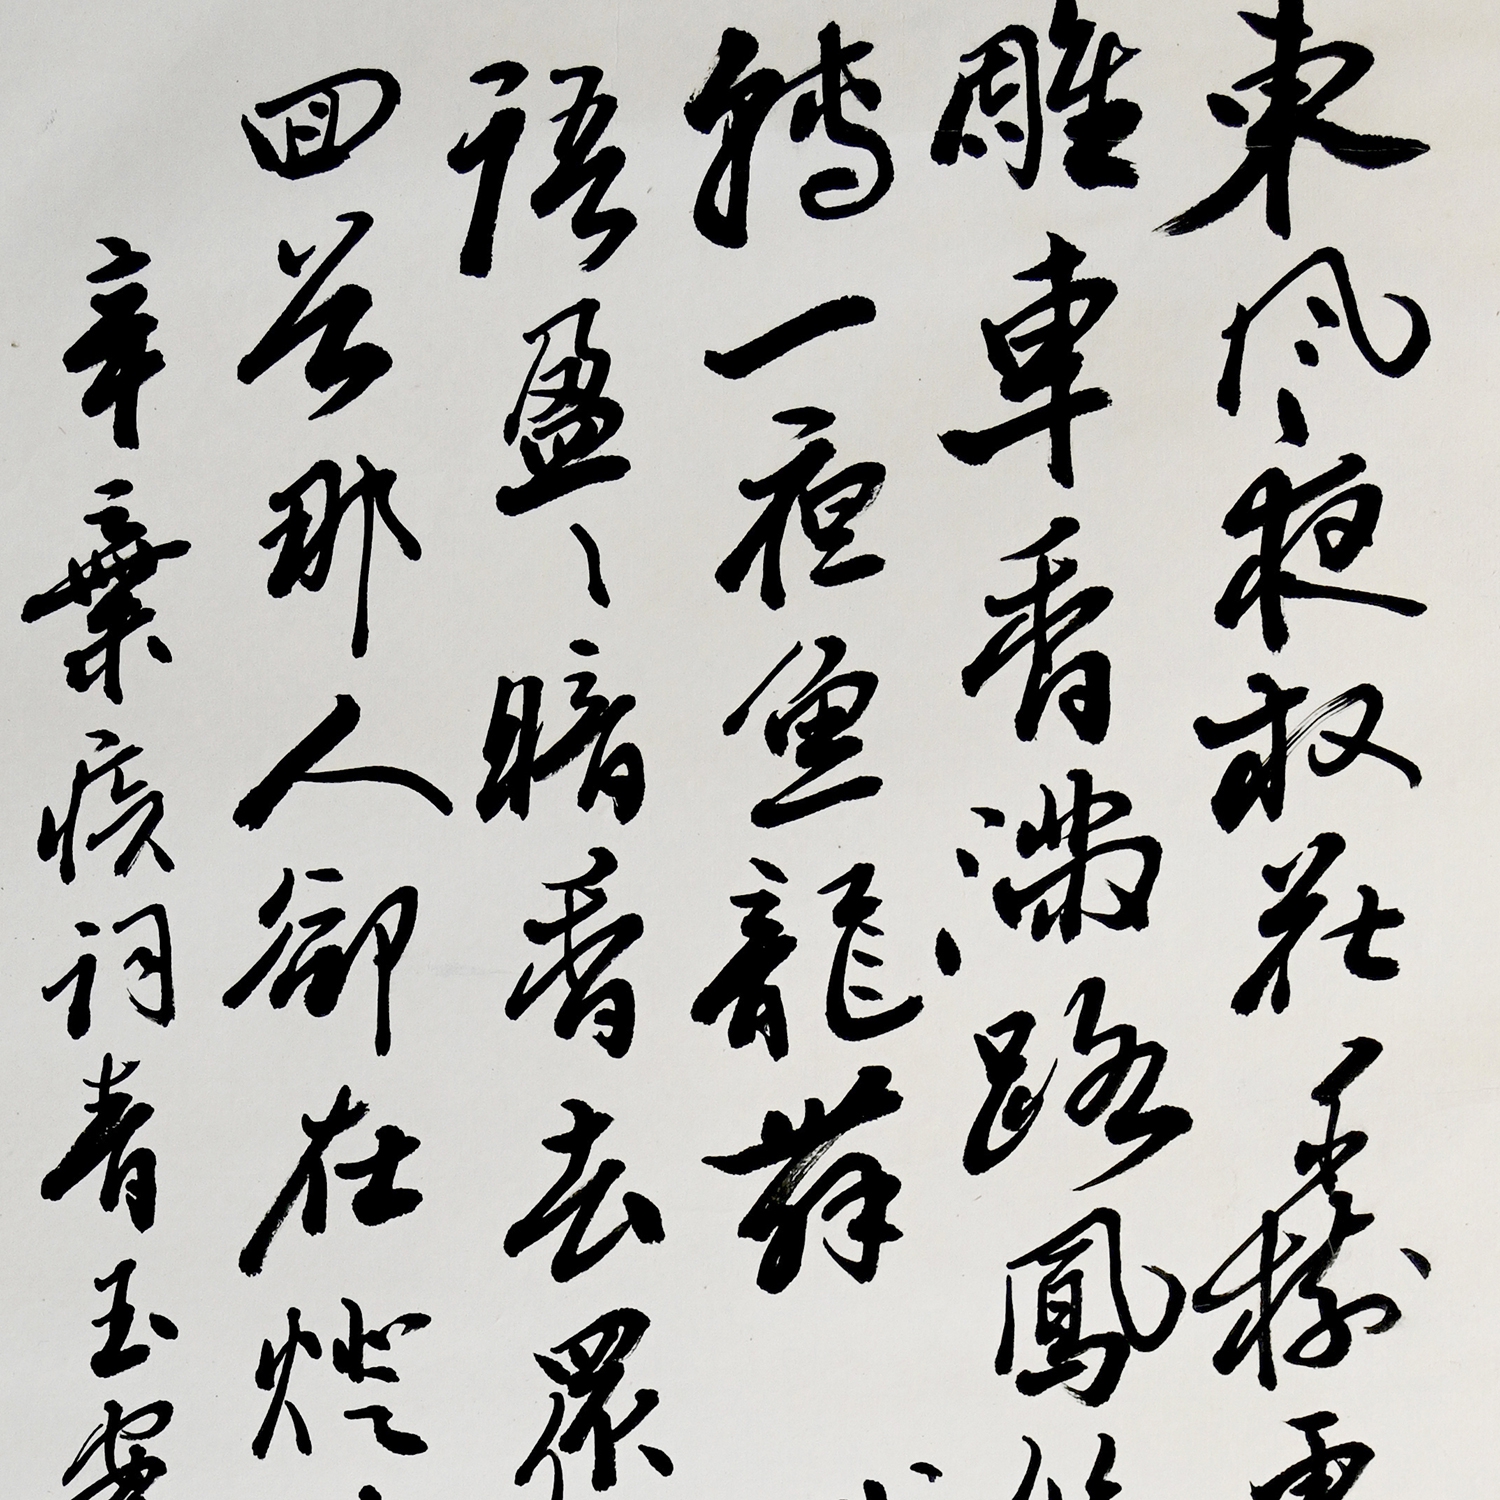 東风夜放花千樹
雕車香滿路鳳
轉一夜魚龍舞
語盈々暗香去眾
回首那人卻在燈
辛棄疾詞青玉案